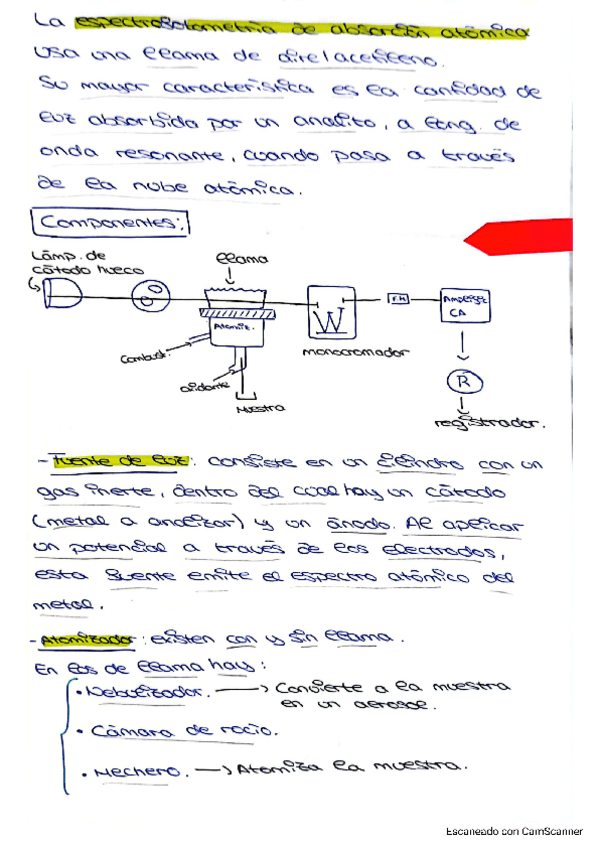 La espectrofotometría de absorción atómica
usa una llama de aire/acetileno.
Su mayor característica es la cantidad de
luz absorbida por un analito, a long. de
onda resonante, cuando pasa a través
de la nube atómica.
Componentes:
Lámp. de
cátodo hueco
llama
Atomiz.
combust.
oxidante
Muestra
monocromador
Amplif.
CA
R
registrador.
- Fuente de luz: consiste en un cilindro con un
gas inerte, dentro del cual hay un cátodo
(metal a analizar) y un ánodo. Al aplicar
un potencial a través de los electrodos,
esta fuente emite el espectro atómico del
metal.
- Atomizador: existen con y sin llama.
En los de llama hay:
• Nebulizador. → Convierte a la muestra
en un aerosol.
• Cámara de rocío.
• Mechero. → Atomiza la muestra.
Escaneado con CamScanner